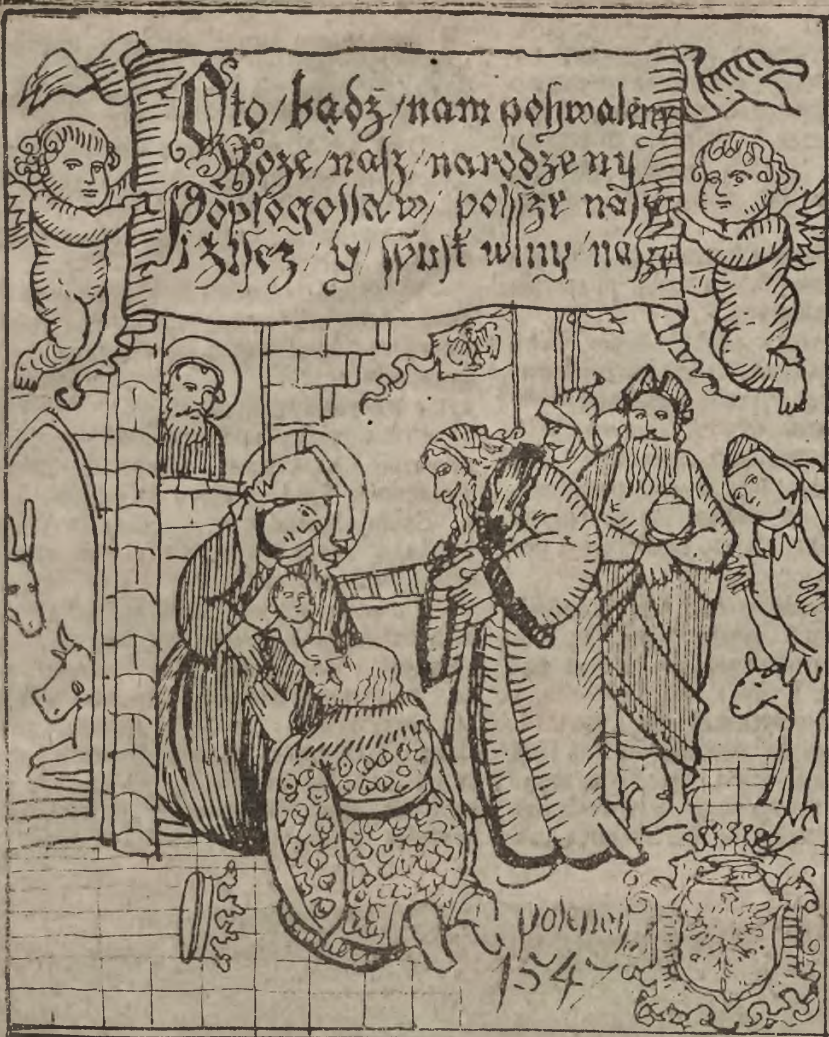 Oto/bądź/nam pohwaleny
Boze/nasz/narodzeny/
Poplogosław/polszże naszy
i zysez/y/spust winy/naszy
polenej
1547